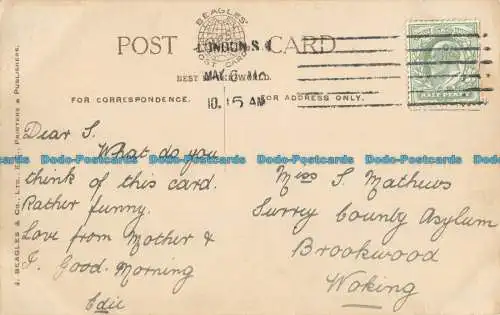 BEAGLES'
POST CARDS
POST CARD
LONDON. S.
MAY 6
10. 15 AM
BEST
FOR CORRESPONDENCE.
FOR ADDRESS ONLY.
HALF PENNY
J. BEAGLES & CO., LTD., PRINTERS & PUBLISHERS.
Dear S.
What do you
think of this card.
Rather funny.
Love from Mother &
J. Good-Morning
Edie
Miss S. Mathews
Surrey County Asylum
Brookwood
Woking
Dodo-Postcards Dodo-Postcards Dodo-Postcards Dodo-Postcards
Dodo-Postcards Dodo-Postcards Dodo-Postcards Dodo-Postcards